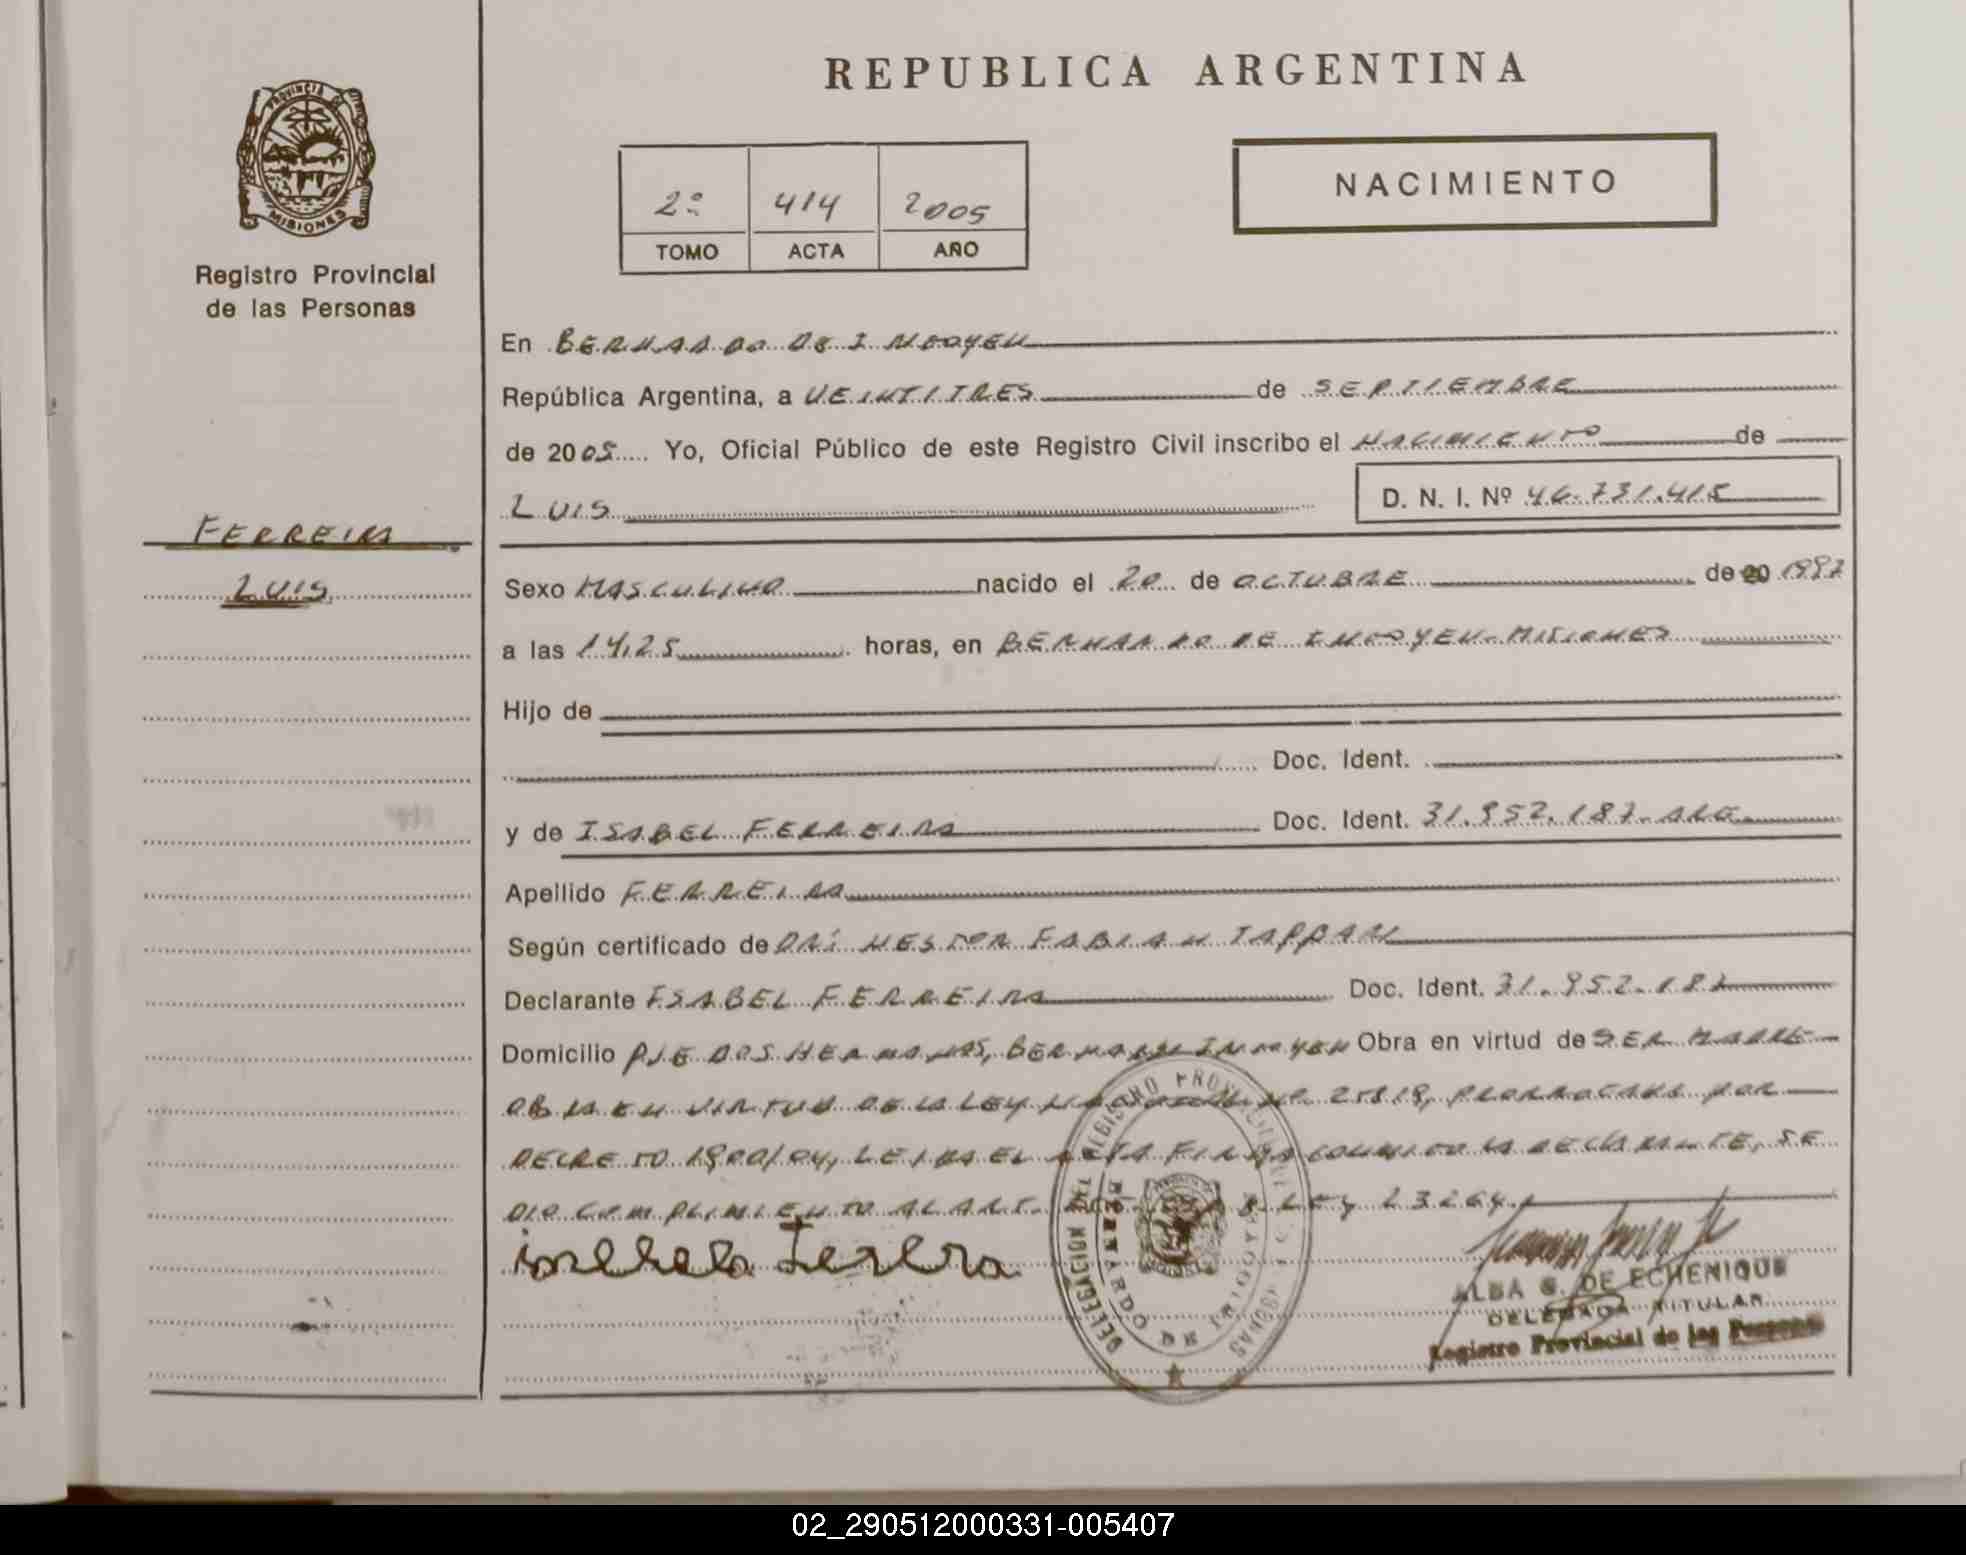 REPUBLICA ARGENTINA
PROVINCIA DE
MISIONES
Registro Provincial
de las Personas
2º 414 2005
TOMO ACTA AÑO
NACIMIENTO
En BERNARDO DE IRIGOYEN
República Argentina, a VEINTITRES de SEPTIEMBRE
de 2005 Yo, Oficial Público de este Registro Civil inscribo el NACIMIENTO de
LUIS D. N. I. Nº 46.731.415
FERREIRA
LUIS
Sexo MASCULINO nacido el 20 de OCTUBRE de 20 1997
a las 14,25 horas, en BERNARDO DE IRIGOYEN-MISIONES
Hijo de
Doc. Ident.
y de ISABEL FERREIRA Doc. Ident. 31.952.187-ARG
Apellido FERREIRA
Según certificado de DR: NESTOR FABIAN TAPPARI
Declarante ISABEL FERREIRA Doc. Ident. 31.952.187
Domicilio PJE DOS HERMANAS, BERNARDO IRIGOYEN Obra en virtud de SER MADRE
OBRA EN VIRTUD DE LA LEY NACIONAL Nº 25819, PRORROGADA POR
DECRETO 1900/04, LEIDA EL ACTA FIRMA CONMIGO LA DECLARANTE, SE
DIO CUMPLIMIENTO AL ART. LEY 23264.
REGISTRO PROVINCIAL DE LAS PERSONAS
DELEGACION
BERNARDO DE IRIGOYEN
ALBA G. DE ECHENIQUE
DELEGADA TITULAR
Registro Provincial de las Personas
02_290512000331-005407